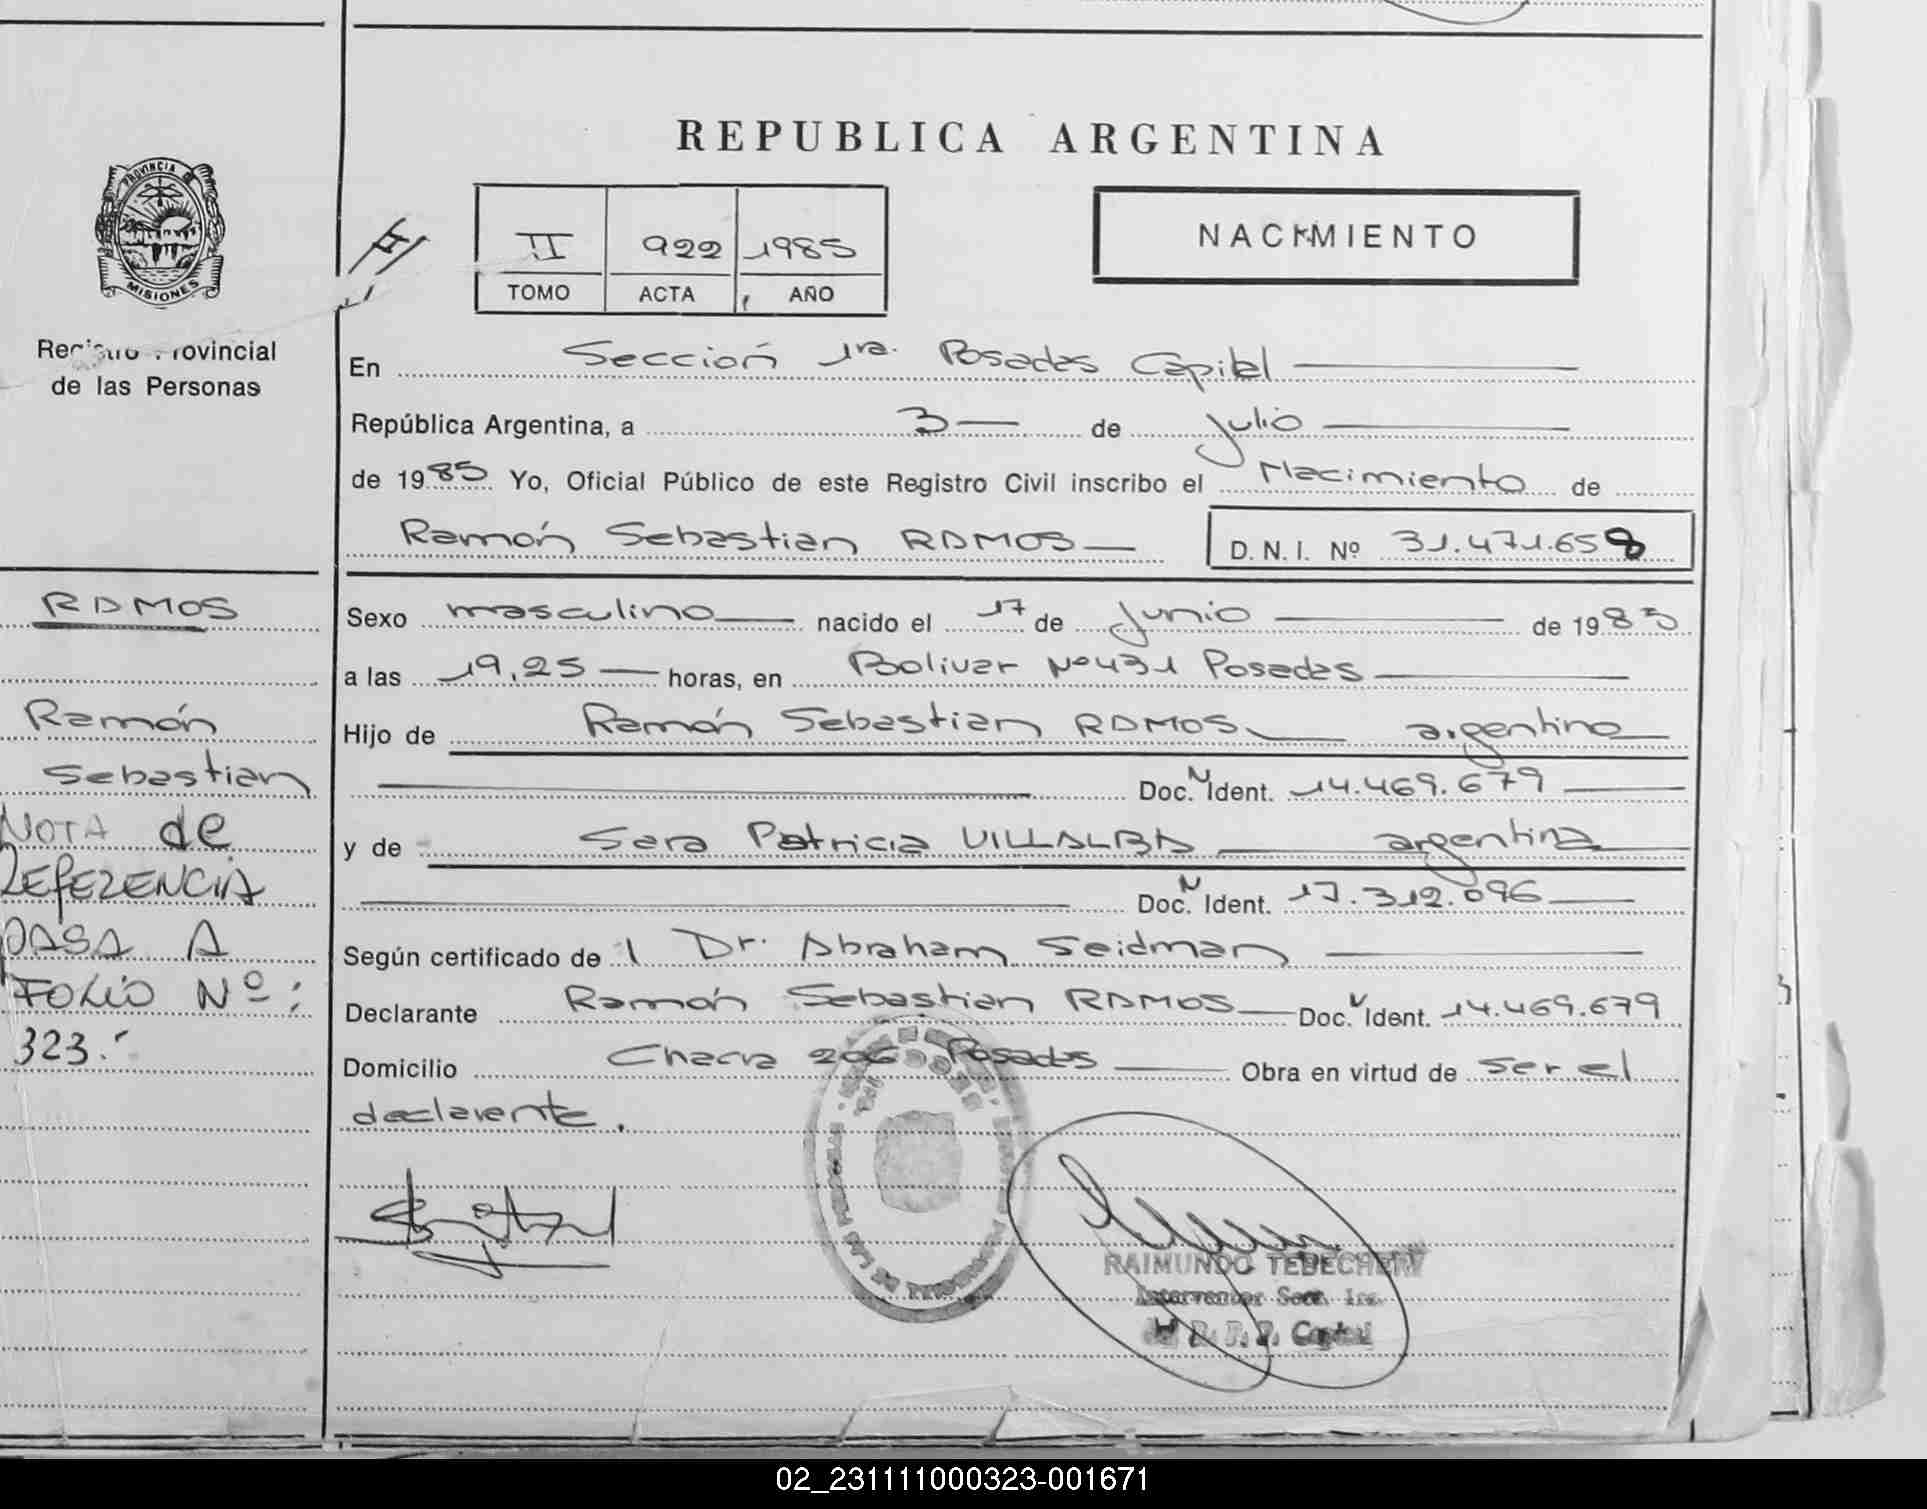 REPUBLICA ARGENTINA
PROVINCIA DE
MISIONES
Registro Provincial
de las Personas
II 922 1985
TOMO ACTA AÑO
NACIMIENTO
En Sección 1ra. Posadas Capital
República Argentina, a 3 de Julio
de 1985 Yo, Oficial Público de este Registro Civil inscribo el Nacimiento de
Ramón Sebastian RAMOS D. N. I. Nº 31.471.658
RAMOS
Ramón
Sebastian
NOTA de
REFERENCIA
PASA A
FOLIO Nº:
323.
Sexo masculino nacido el 17 de Junio de 1983
a las 19,25 horas, en Bolivar Nº431 Posadas
Hijo de Ramón Sebastian RAMOS argentino
Doc. N Ident. 14.469.679
y de Sara Patricia VILLALBA argentina
Doc. N Ident. 17.312.096
Según certificado de l Dr. Abraham Seidman
Declarante Ramón Sebastian RAMOS Doc. N Ident. 14.469.679
Domicilio Chacra 206 Posadas Obra en virtud de ser el
declarante.
DE LAS PERSONAS
RAIMUNDO TEBECHERY
Interventor Secc. 1ra.
del R. P. P. Capital
02_231111000323-001671